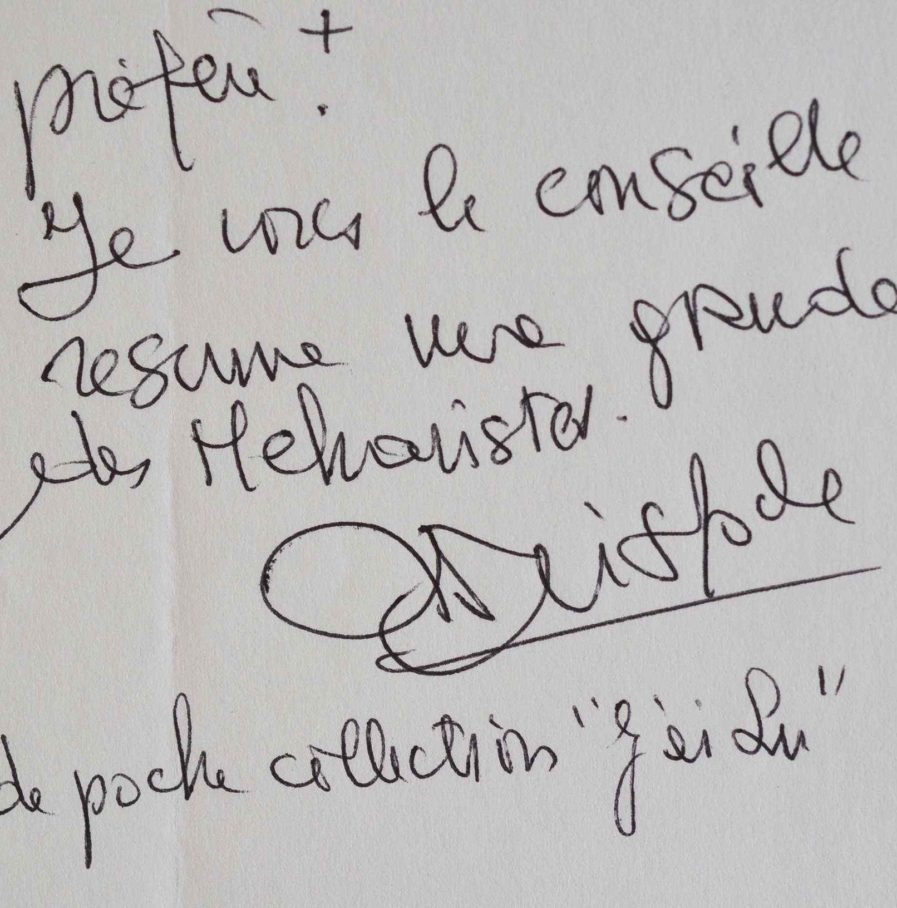 préféré +.
Je vous le conseille
résume une grande
des Meharistes.
de poche collection "J'ai Lu"